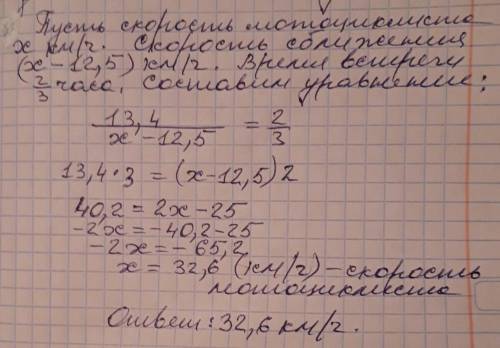 Пусть скорость мотоциклиста
x км/г. Скорость сближения
(x-12,5) км/г. Время встречи
2/3 часа. Составим уравнение:
13,4/(x-12,5) = 2/3
13,4·3 = (x-12,5)2
40,2 = 2x-25
-2x = -40,2-25
-2x = -65,2
x = 32,6 (км/г) - скорость
мотоциклиста
Ответ: 32,6 км/г.